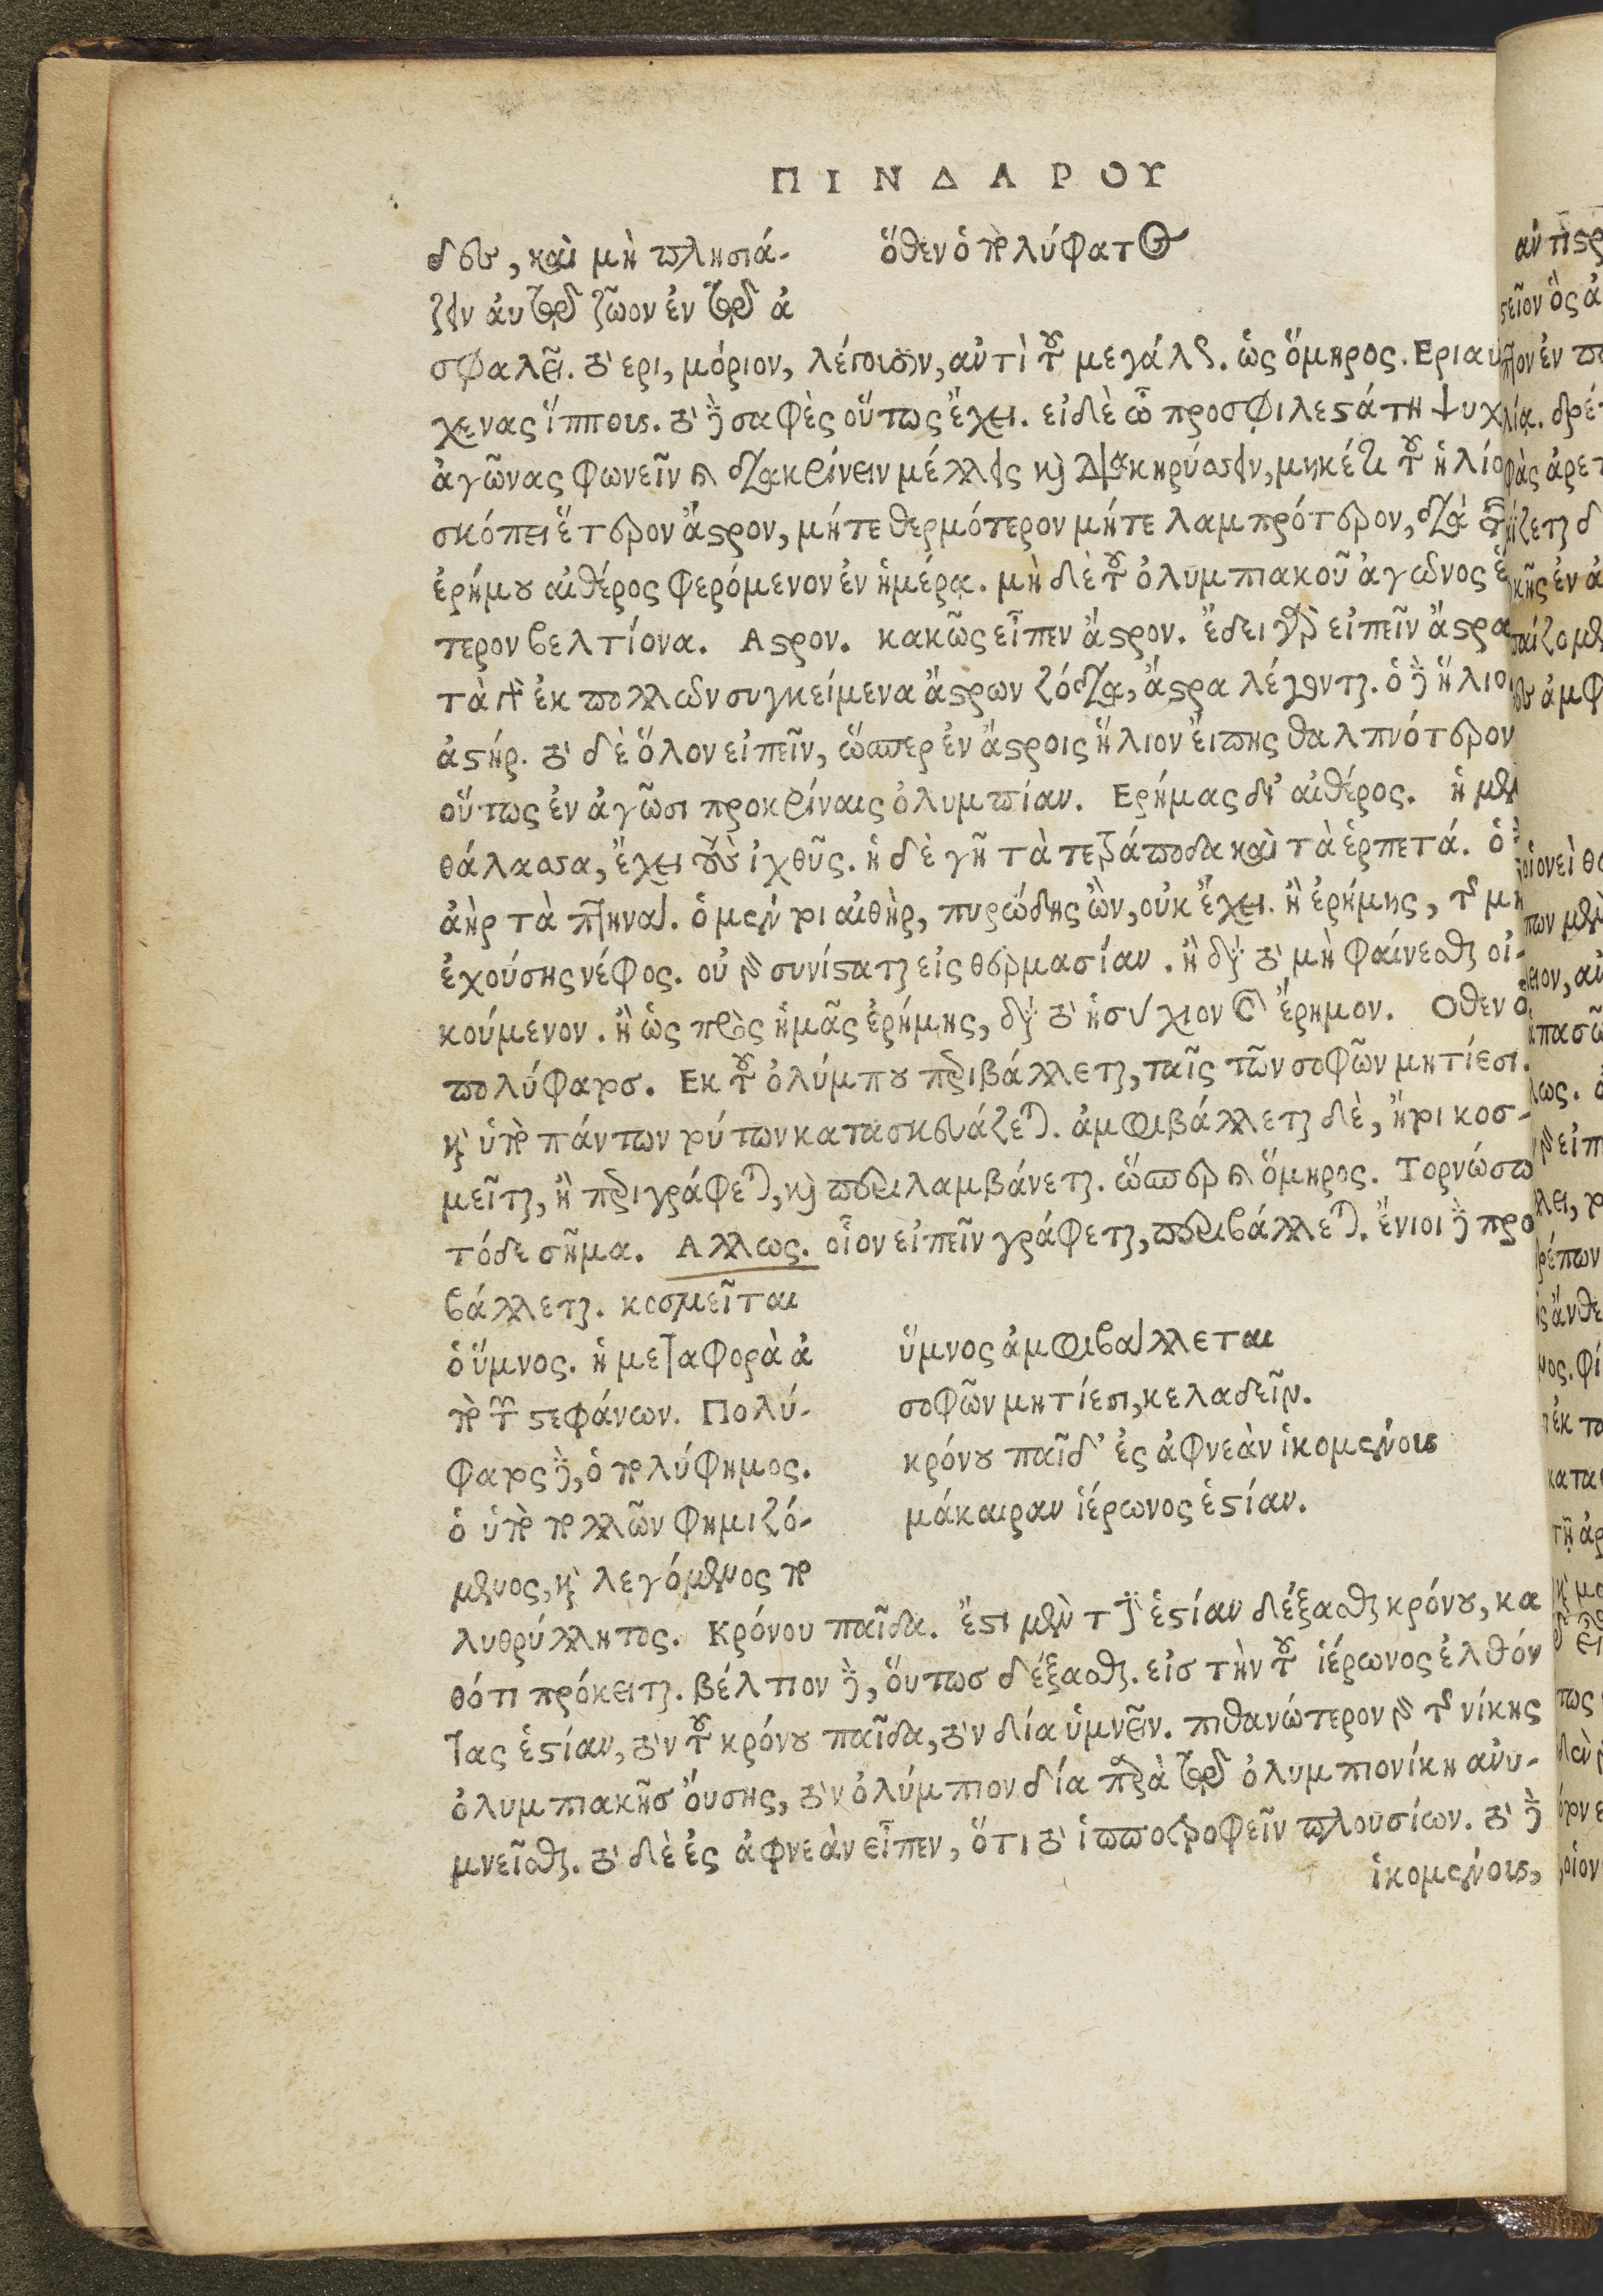 ΠΙΝΔΑΡΟΥ
δεν, καὶ μὴ πλησιά-
ζειν αὐτῷ ζῶον ἐν τῷ ἀ
ὅθεν ὁ πολύφατος
σφαλεῖ. τὸ ερι, μόριον, λέγουσιν, αὐτὶ τοῦ μεγάλου. ὡς ὅμηρος. Εριαυ
χενας ἵππους. τὸ δὲ σαφὲς οὕτως ἔχει. εἰ δὲ ὦ προσφιλεστάτη ψυχ
ἀγῶνας φωνεῖν καὶ διακρίνειν μέλλεις καὶ διακηρύσσειν, μηκέτι τοῦ ἡλίο
σκόπει ἕτερον ἄστρον, μήτε θερμότερον μήτε λαμπρότερον, διὰ τῆς
ἐρήμου αἰθέρος φερόμενον ἐν ἡμέρᾳ. μὴ δὲ τοῦ ὀλυμπιακοῦ ἀγῶνος ἕ
τερον βελτίονα. Αστρον. κακῶς εἶπεν ἄστρον. ἔδει γὰρ εἰπεῖν ἄστρα
τὰ γὰρ ἐκ πολλῶν συγκείμενα ἄστρων ζόδια, ἄστρα λέγονται. ὁ δὲ ἥλιο
ἀστήρ. τὸ δὲ ὅλον εἰπεῖν, ὥσπερ ἐν ἄστροις ἥλιον εἴπης θαλπνότερον
οὕτως ἐν ἀγῶσι προκρίναις ὀλυμπίαν. Ερήμας δι' αἰθέρος. ἡ μὲν
θάλασσα, ἔχει τοὺς ἰχθῦς. ἡ δὲ γῆ τὰ τετράποδα καὶ τὰ ἑρπετά. ὁ δὲ
ἀὴρ τὰ πτηνά. ὁ μέντοι αἰθὴρ, πυρώδης ὢν, οὐκ ἔχει. ἢ ἐρήμης, τῆς μὴ
ἐχούσης νέφος. οὐ γὰρ συνίσταται εἰς θερμασίαν. ἢ διὰ τὸ μὴ φαίνεσθαι οἰ-
κούμενον. ἢ ὡς πρὸς ἡμᾶς ἐρήμης, διὰ τὸ ἡσύχιον καὶ ἔρημον. Οθεν ὁ
πολύφατος. Εκ τοῦ ὀλύμπου περιβάλλεται, ταῖς τῶν σοφῶν μητίεσι.
καὶ ὑπὸ πάντων τούτων κατασκευάζεται. ἀμφιβάλλεται δὲ, ἤτοι κοσ-
μεῖται, ἢ περιγράφεται, καὶ περιλαμβάνεται. ὥσπερ καὶ ὅμηρος. Τορνώσω
τόδε σῆμα. Αλλως. οἷον εἰπεῖν γράφεται, περιβάλλεται. ἔνιοι δὲ προ
βάλλεται. κοσμεῖται
ὁ ὕμνος. ἡ μεταφορὰ ἀ
πὸ τῶν στεφάνων. Πολύ-
φατος δὲ, ὁ πολύφημος.
ὁ ὑπὸ πολλῶν φημιζό-
μενος, καὶ λεγόμενος πο
ὕμνος ἀμφιβάλλεται
σοφῶν μητίεσι, κελαδεῖν.
κρόνου παῖδ' ἐς ἀφνεὰν ἱκομένους
μάκαιραν ἱέρωνος ἑστίαν.
λυθρύλλητος. Κρόνου παῖδα. ἔστι μὲν τὴν ἑστίαν δέξασθαι κρόνου, κα
θότι πρόκειται. βέλτιον δὲ, ὅυτωσ δέξασθαι. εἰσ τὴν τοῦ ἱέρωνος ἐλθόν
τας ἑστίαν, τὸν τοῦ κρόνου παῖδα, τὸν δία ὑμνεῖν. πιθανώτερον γὰρ τῆς νίκης
ὀλυμπιακῆσ ὄυσης, τὸν ὀλύμπιον δία παρὰ τῷ ὀλυμπιονίκη ἀνυ-
μνεῖσθαι. τὸ δὲ ἐς ἀφνεὰν εἶπεν, ὅτι τὸ ἱπποτροφεῖν πλουσίων. τὸ δὲ
ἱκομένους,